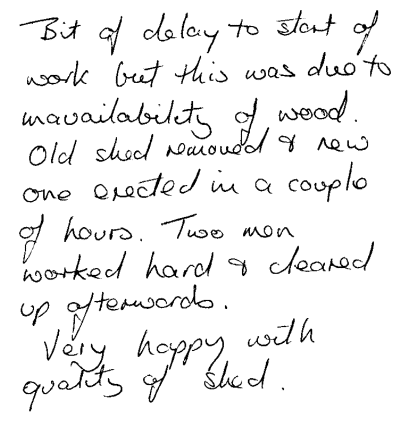 Bit of delay to start of
work but this was due to
unavailability of wood.
Old shed removed & new
one erected in a couple
of hours. Two men
worked hard & cleared
up afterwards.
Very happy with
quality of shed.